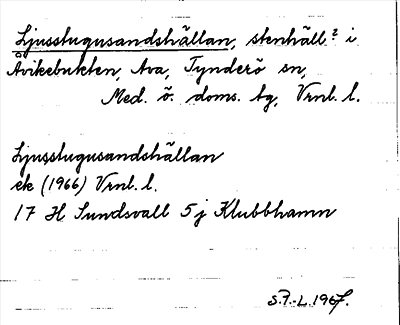 Ljusstugusandshällan, stenhäll? i
Åvikebukten, Ava, Tynderö sn,
Med. ö. doms. tg, Vrnl. l.
Ljusstugusandshällan
ek (1966) Vrnl. l.
17 H Sundsvall 5j Klubbhamn
S.F.-L. 1967.